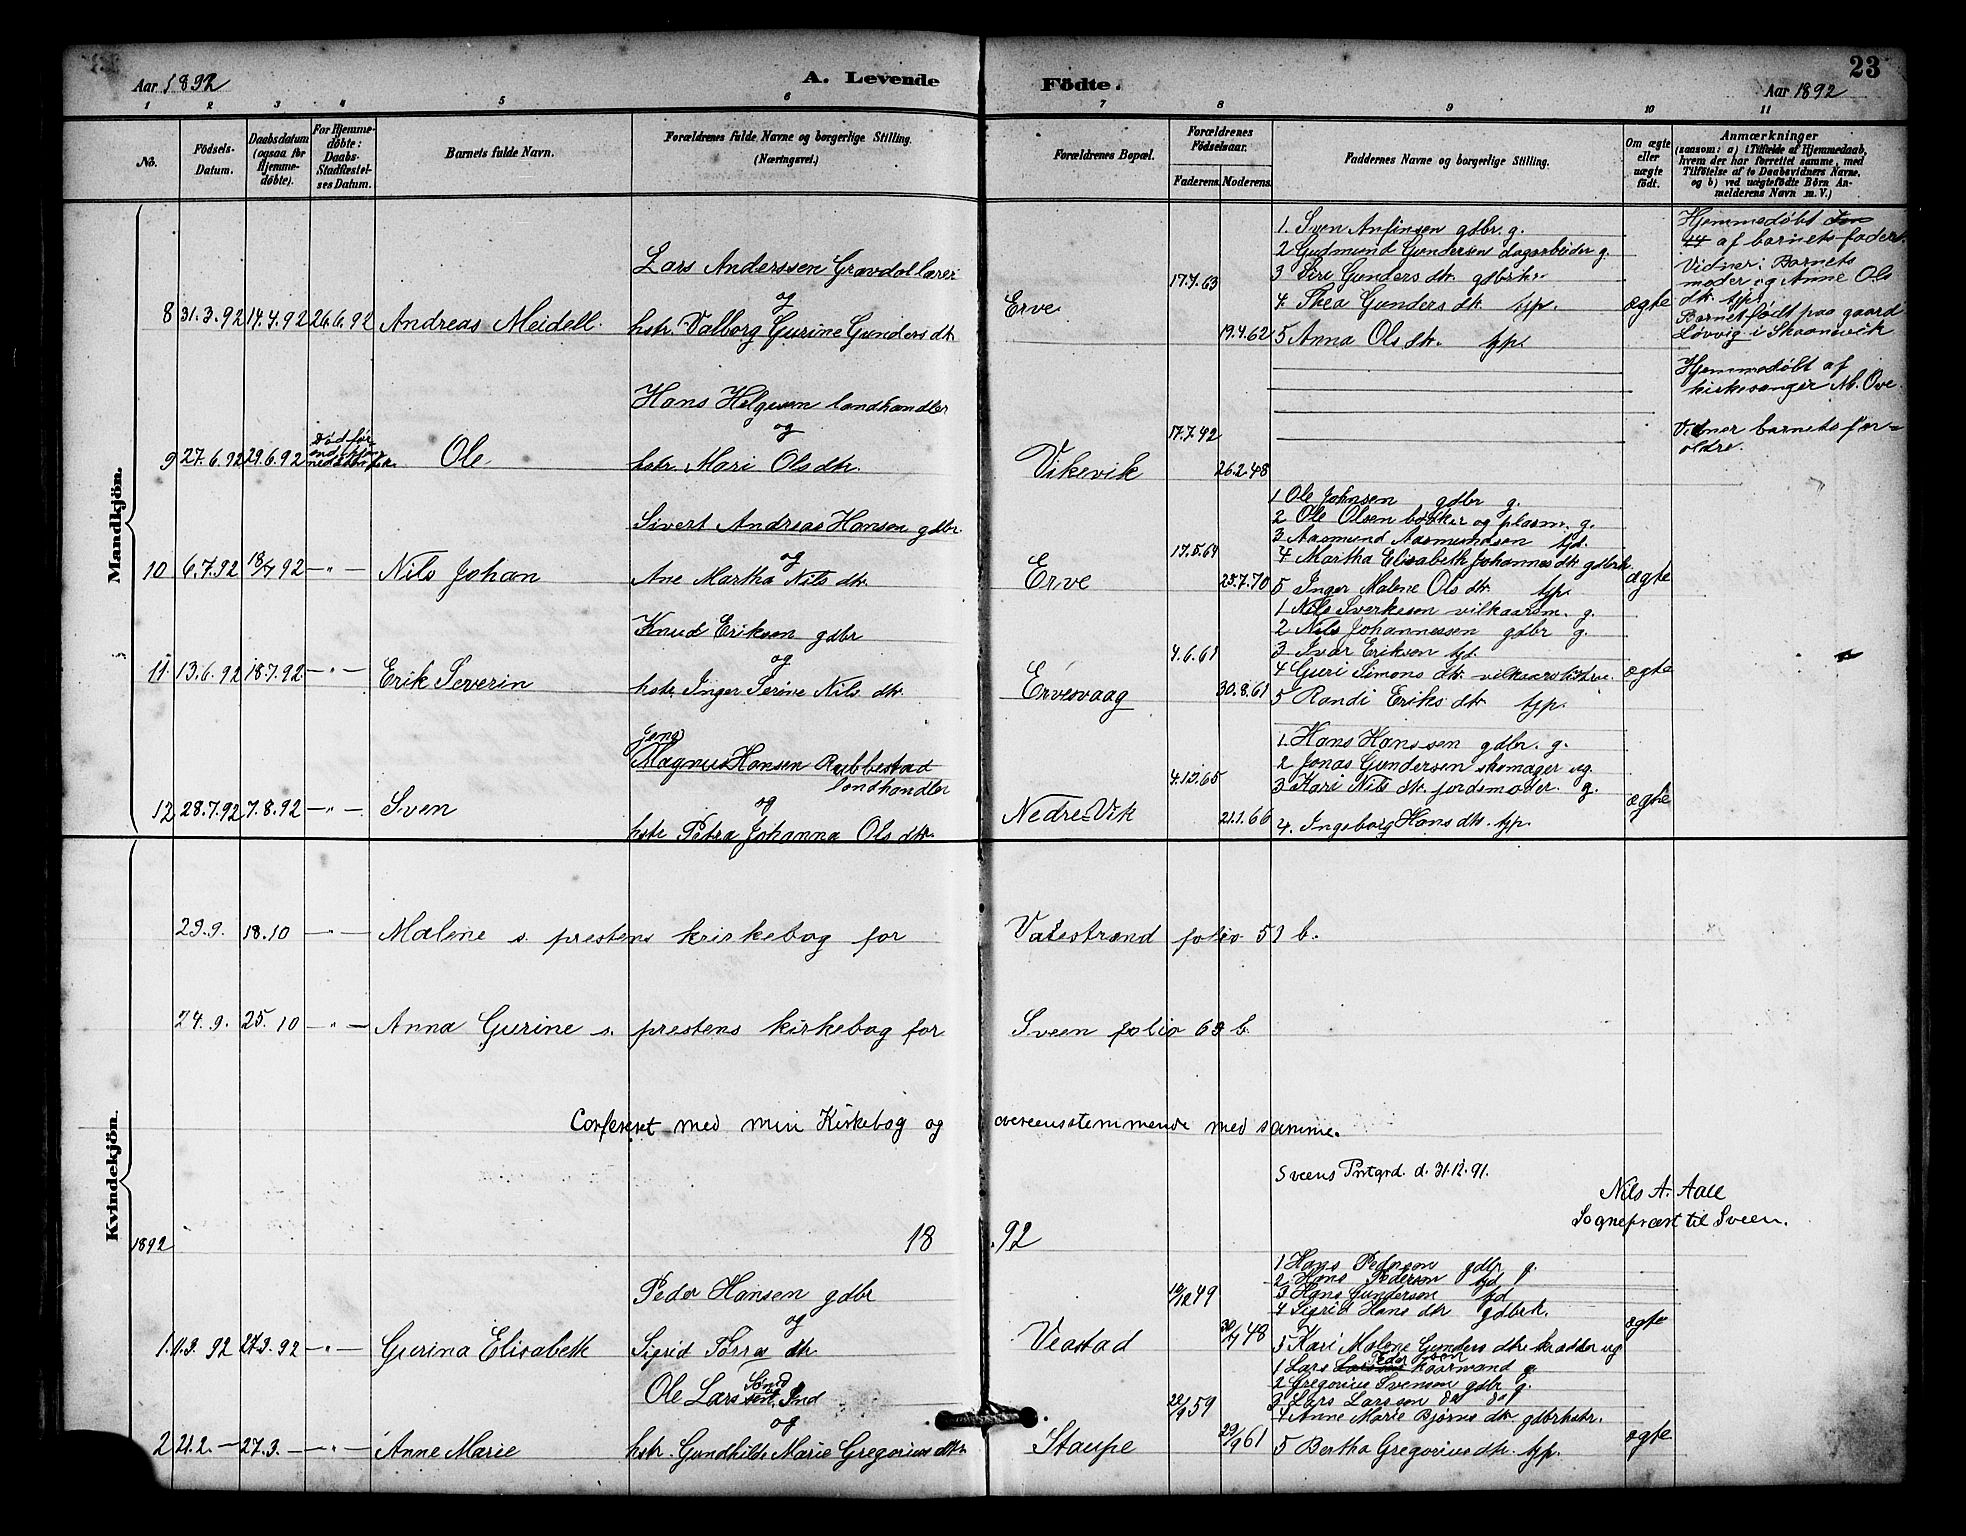 Aar 1892
A. Levende
Födte.
23
Aar 1892
1 2 3 4 5 6 7 8 9 10 11
No.
Födsels-Datum.
Daabsdatum (ogsaa for Hjemme-döbte).
For Hjemme-döbte: Daabs-Stadfæstel-ses Datum.
Barnets fulde Navn.
Forældrenes fulde Navne og borgerlige Stilling. (Næringsvei.)
Forældrenes Bopæl.
Forældrenes Födselsaar.
Faderens. Moderens.
Faddernes Navne og borgerlige Stilling.
Om ægte eller uægte födt.
Anmærkninger
(saasom: a) i Tilfælde af Hjemmedaab,
hvem der har forrettet samme, med
Tilföielse af to Daabsvidners Navne,
og b) ved uægtefödte Börn An-
melderens Navn m. V.)
Mandkjön.
8 31.3.92 14.4.92 26.6.92 Andreas Meidell.
Lars Anderssen Gravdal lærer
og
hstr. Valborg Gurine Gunders dtr.
Erve
17.7.63
19.4.62
1. Sven Anfinsen gdbr. g.
2 Gudmund Gundersen dagarbeider g.
3 Siri Gunders dtr. gdbrk.
4. Thea Gunders dtr. tjp.
5 Anna Ols dtr. tjp.
ægte
Hjemmedøbt den
14 af barnets fader.
Vidner: Barnets
moder og Anne Ols
dtr. tjp.
Barnet født paa gaard
Løvvig i Skaanevik
9 27.6.92 29.6.92 Død før
Ole
Hans Helgesen landhandler
og
hstr. Mari Ols dtr.
Vikevik
17.7.42
26.2.48
Hjemmedøbt af
kirkesanger M. Ove.
Vidner barnets for-
ældre.
10 6.7.92 18/7 92 -"- Nils Johan
Sivert Andreas Hansen gdbr.
og
Ane Martha Nils dtr.
Erve
17.5.64
25.7.70
1 Ole Johnsen gdbr g.
2 Ole Olsen bødker og plasm. g.
3 Aasmund Aasmundsen tjd.
4 Martha Elisabeth Johannes dtr gdbrk.
5 Inger Malene Ols dtr. tjp.
ægte
11. 13.6.92 18.7.92 -"- Erik Severin
Knud Eriksen gdbr
og
hstr Inger Serine Nils dtr.
Ervesvaag
4.6.61
30.8.61
1 Nils Sverkesen vilkaarsm. g.
2 Nils Johannessen gdbr g.
3 Ivar Eriksen tjd.
4 Guri Simons dtr. vilkaarskstrue.
5 Randi Eriks dtr tjp.
ægte
12 28.7.92 7.8.92 -"- Sven
Jens
Magnus Hansen Rubbestad
landhandler
og
hstr Petra Johanna Ols dtr.
Nedre-Vik
4.12.65
21.1.66
1. Hans Hanssen gdbr. g.
2 Jonas Gundersen skomager ug.
3 Kari Nils dtr. jordemoder. g.
4. Ingeborg Hans dtr. tjp.
ægte
Kvindekjön.
29.9. 18.10 -"- Malene s. prestens kirkebog for Valestrand folio 51 b.
24.9. 25.10 -"- Anna Gurine s. prestens kirkebog for Sveen folio 69 b.
Conferert med min Kirkebog og overensstemmende med samme.
Sveens Prstgrd. d. 31.12.91.
Nils A. Aall
Sogneprest til Sveen.
1892
18 92
1. 11.3.92 27.3.92 -"- Gurina Elisabeth
Peder Hansen gdbr
og
Sigrid Torres dtr
Veastad
10/12 49
30/7 48
1 Hans Pedersen gdbr g.
2. Hans Pedersen tjd
3 Hans Gundersen tjd
4 Sigrid Hans dtr gdbrk.
5 Kari Malene Gunders dtr skrædder ug
ægte
2 21.2.- 27.3.- -"- Anne Marie
Ole Larssen Ind
og
hstr. Gundhilde Marie Gregorius dtr.
Staupe
22/9 59
29/9 61
1 Lars Pedersen kaarmand g.
2 Gregorius Svensen gdbr g.
3 Lars Larssen do do
4 Anne Marie Bjørns dtr gdbrkstr.
5 Bertha Gregorius dtr. tjp.
ægte